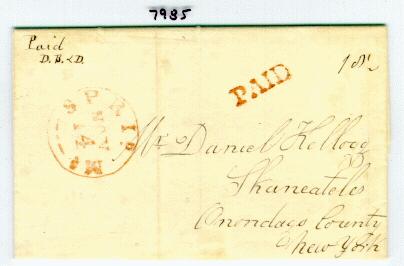 7985
Paid
D. B. & D.
PAID
18¾
SPRI
Ms
NOV
14
Mr. Daniel Kellogg
Skaneateles
Onondaga County
New York